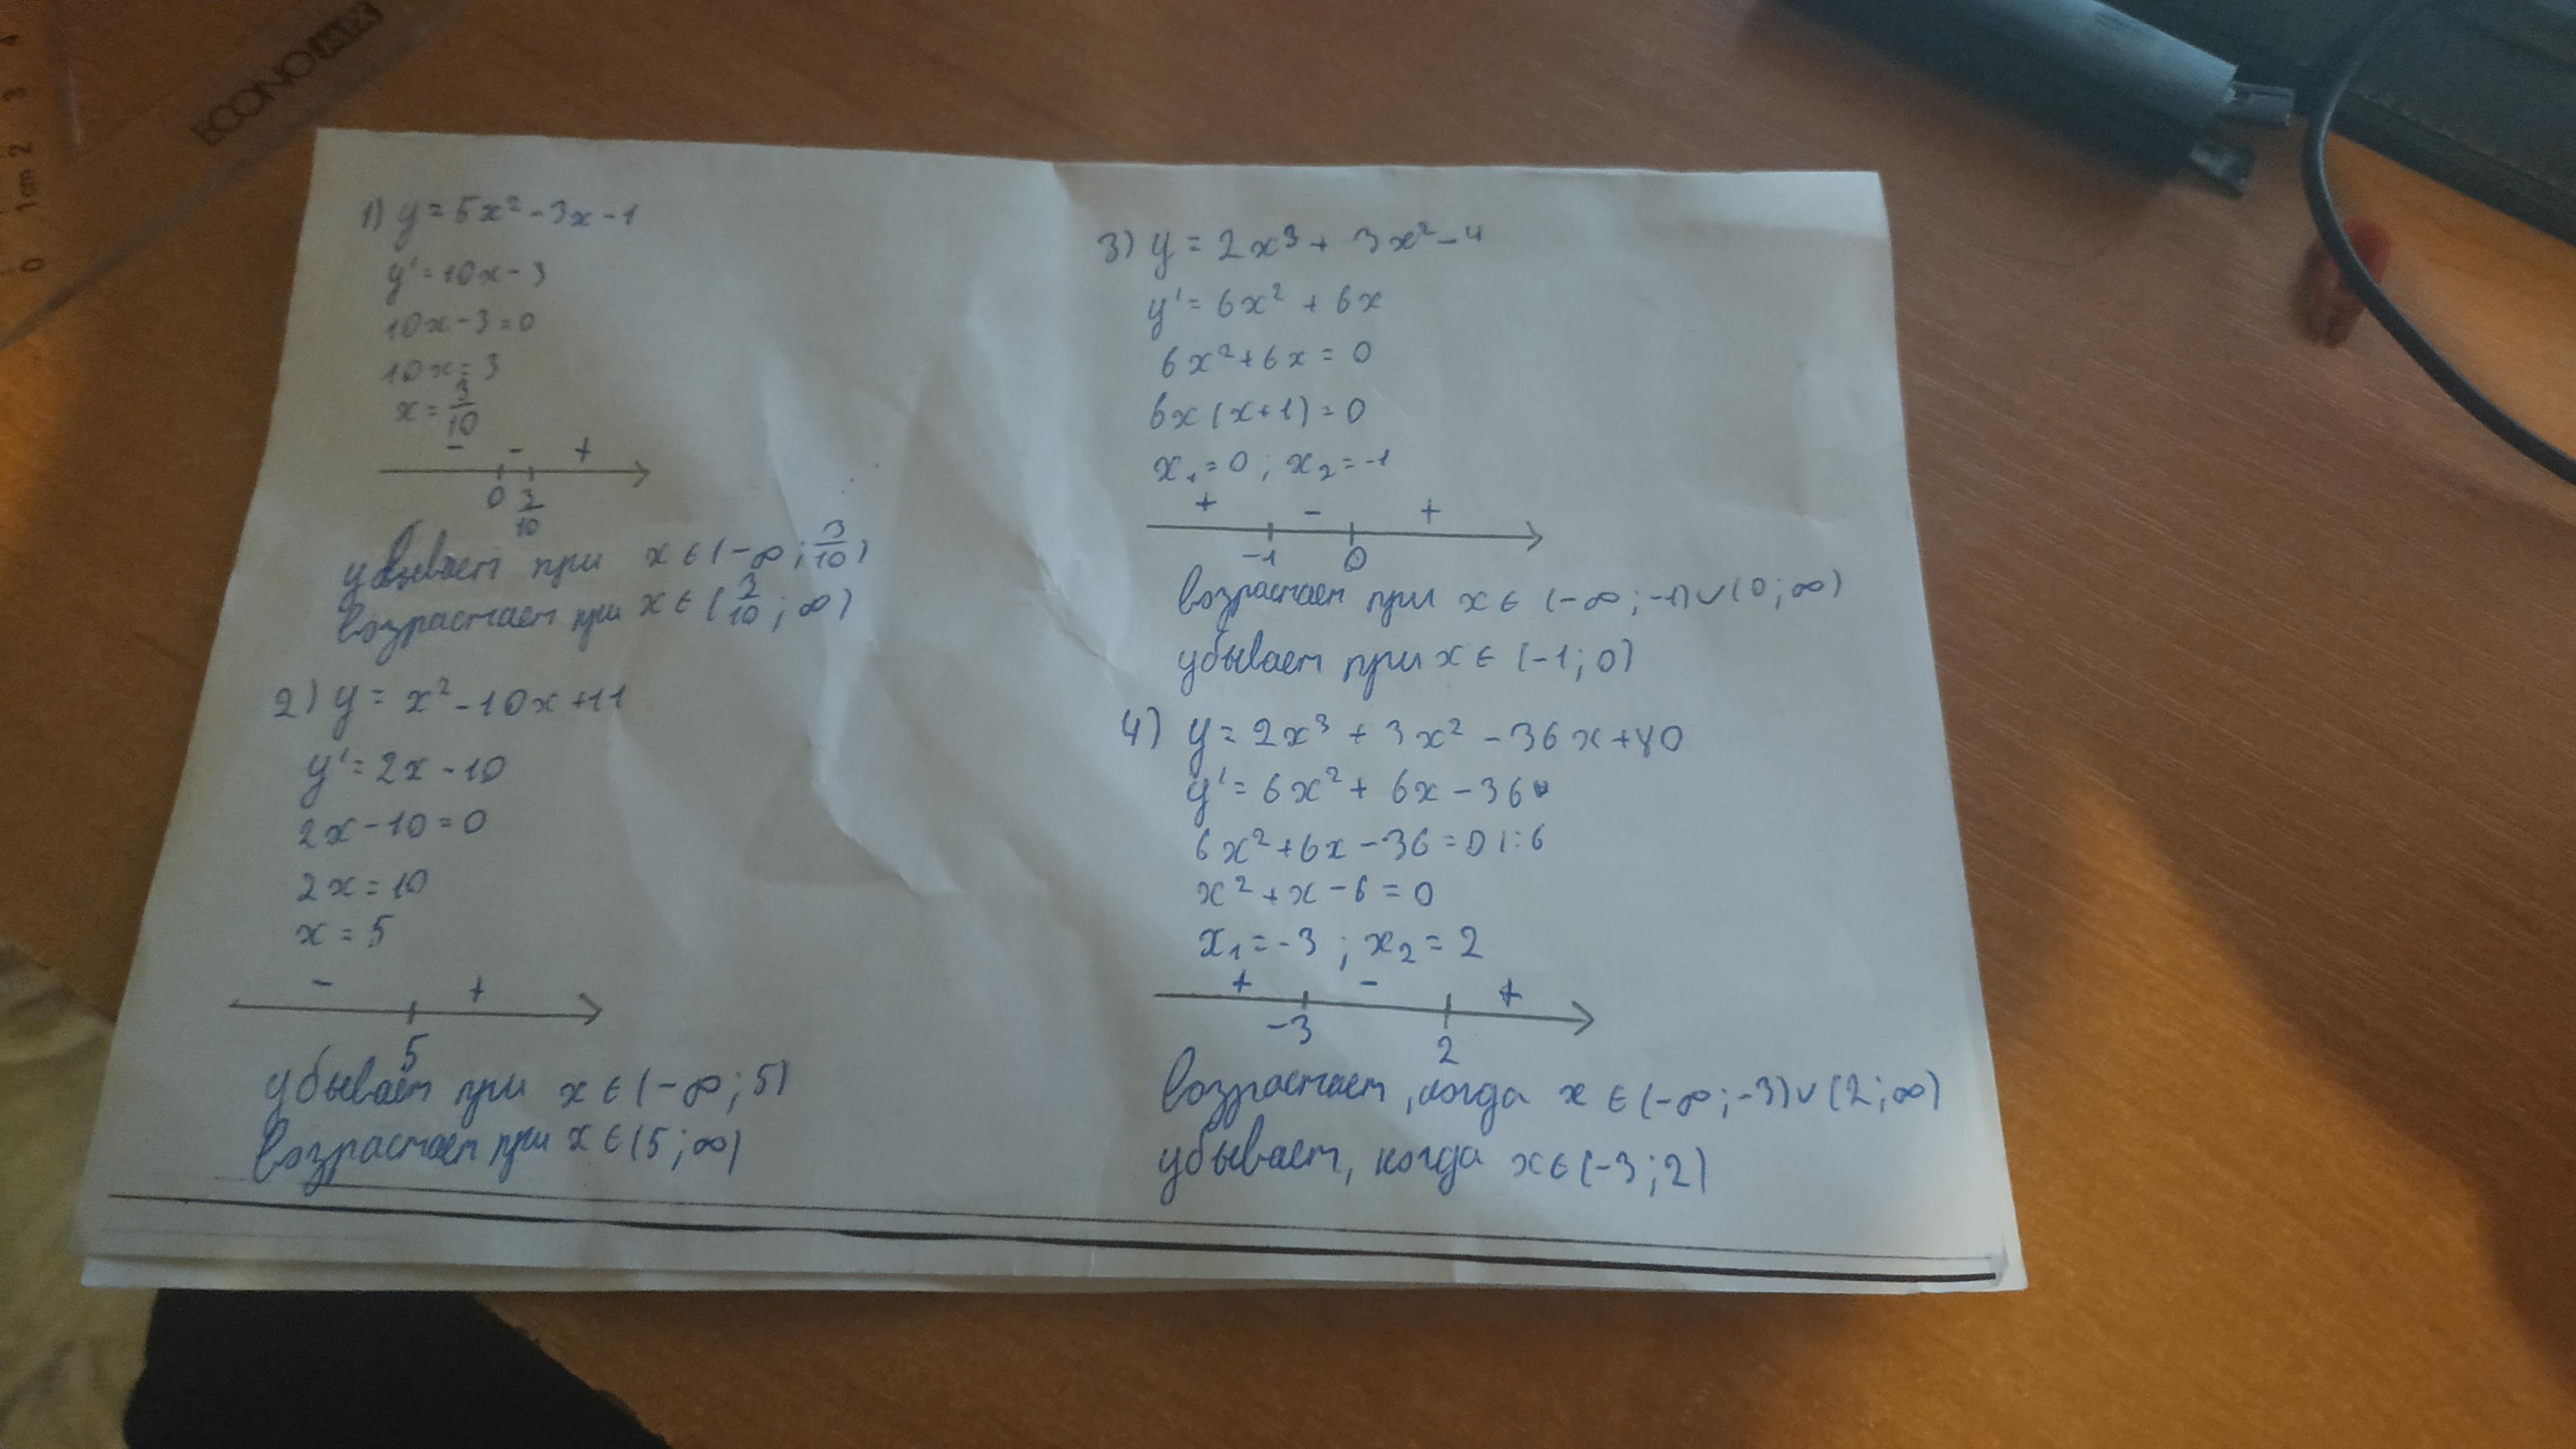 ECONOMIX
0 1cm 2 3 4
1) y = 5x² - 3x - 1
y' = 10x - 3
10x - 3 = 0
10x = 3
x = 3/10
- - +
0 3/10
убывает при x ∈ (-∞; 3/10)
возрастает при x ∈ (3/10; ∞)
2) y = x² - 10x + 11
y' = 2x - 10
2x - 10 = 0
2x = 10
x = 5
- +
5
убывает при x ∈ (-∞; 5)
возрастает при x ∈ (5; ∞)
3) y = 2x³ + 3x² - 4
y' = 6x² + 6x
6x² + 6x = 0
6x (x+1) = 0
x₁ = 0 ; x₂ = -1
+ - +
-1 0
возрастает при x ∈ (-∞; -1) ∪ (0; ∞)
убывает при x ∈ (-1; 0)
4) y = 2x³ + 3x² - 36x + 40
y' = 6x² + 6x - 36
6x² + 6x - 36 = 0 |:6
x² + x - 6 = 0
x₁ = -3 ; x₂ = 2
+ - +
-3 2
возрастает, когда x ∈ (-∞; -3) ∪ (2; ∞)
убывает, когда x ∈ (-3; 2)